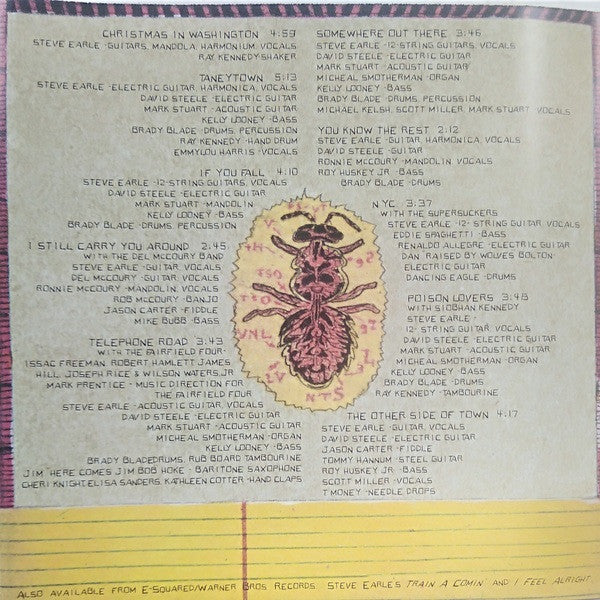 CHRISTMAS IN WASHINGTON 4:59
STEVE EARLE -GUITARS, MANDOLA, HARMONIUM, VOCALS
RAY KENNEDY-SHAKER
TANEYTOWN 5:13
STEVE EARLE -ELECTRIC GUITAR, HARMONICA, VOCALS
DAVID STEELE -ELECTRIC GUITAR
MARK STUART -ACOUSTIC GUITAR
KELLY LOONEY -BASS
BRADY BLADE -DRUMS, PERCUSSION
RAY KENNEDY -HAND DRUM
EMMYLOU HARRIS -VOCALS
IF YOU FALL 4:10
STEVE EARLE -12-STRING GUITARS, VOCALS
DAVID STEELE -ELECTRIC GUITAR
MARK STUART -MANDOLIN
KELLY LOONEY -BASS
BRADY BLADE -DRUMS, PERCUSSION
I STILL CARRY YOU AROUND 2:45
WITH THE DEL MCCOURY BAND
STEVE EARLE -GUITAR, VOCALS
DEL MCCOURY -GUITAR, VOCALS
RONNIE MCCOURY -MANDOLIN, VOCALS
ROB MCCOURY -BANJO
JASON CARTER -FIDDLE
MIKE BUBB -BASS
TELEPHONE ROAD 3:43
WITH THE FAIRFIELD FOUR-
ISSAC FREEMAN, ROBERT HAMLETT, JAMES
HILL, JOSEPH RICE & WILSON WATERS, JR
MARK PRENTICE - MUSIC DIRECTION FOR
THE FAIRFIELD FOUR
STEVE EARLE -ACOUSTIC GUITAR, VOCALS
DAVID STEELE -ELECTRIC GUITAR
MARK STUART -ACOUSTIC GUITAR
MICHEAL SMOTHERMAN -ORGAN
KELLY LOONEY -BASS
BRADY BLADEDRUMS, RUB BOARD TAMBOURINE
JIM "HERE COMES JIM BOB" HOKE - BARITONE SAXOPHONE
CHERI KNIGHT, ELISA SANDERS, KATHLEEN COTTER -HAND CLAPS
SOMEWHERE OUT THERE 3:46
STEVE EARLE -12-STRING GUITARS, VOCALS
DAVID STEELE -ELECTRIC GUITAR
MARK STUART -ACOUSTIC GUITAR
MICHEAL SMOTHERMAN -ORGAN
KELLY LOONEY -BASS
BRADY BLADE -DRUMS, PERCUSSION
MICHAEL KELSH, SCOTT MILLER, MARK STUART -VOCALS
YOU KNOW THE REST 2:12
STEVE EARLE -GUITAR, HARMONICA, VOCALS
DAVID STEELE -GUITAR
RONNIE MCCOURY -MANDOLIN, VOCALS
ROY HUSKEY JR -BASS
BRADY BLADE -DRUMS
NYC 3:37
WITH THE SUPERSUCKERS
STEVE EARLE -12- STRING GUITAR, VOCALS
EDDIE SPAGHETTI - BASS
RENALDO ALLEGRE -ELECTRIC GUITAR
DAN "RAISED BY WOLVES" BOLTON-
ELECTRIC GUITAR
DANCING EAGLE -DRUMS
POISON LOVERS 3:48
WITH SIOBHAN KENNEDY
STEVE EARLE -
12- STRING GUITAR, VOCALS
DAVID STEELE -ELECTRIC GUITAR
MARK STUART -ACOUSTIC GUITAR
MICHEAL SMOTHERMAN -ORGAN
KELLY LOONEY -BASS
BRADY BLADE -DRUMS
RAY KENNEDY -TAMBOURINE
THE OTHER SIDE OF TOWN 4:17
STEVE EARLE -GUITAR, VOCALS
DAVID STEELE -ELECTRIC GUITAR
JASON CARTER -FIDDLE
TOMMY HANNUM -STEEL GUITAR
ROY HUSKEY JR -BASS
SCOTT MILLER -VOCALS
T MONEY -NEEDLE DROPS
ALSO AVAILABLE FROM E-SQUARED/WARNER BROS. RECORDS: STEVE EARLE'S TRAIN A COMIN' AND I FEEL ALRIGHT